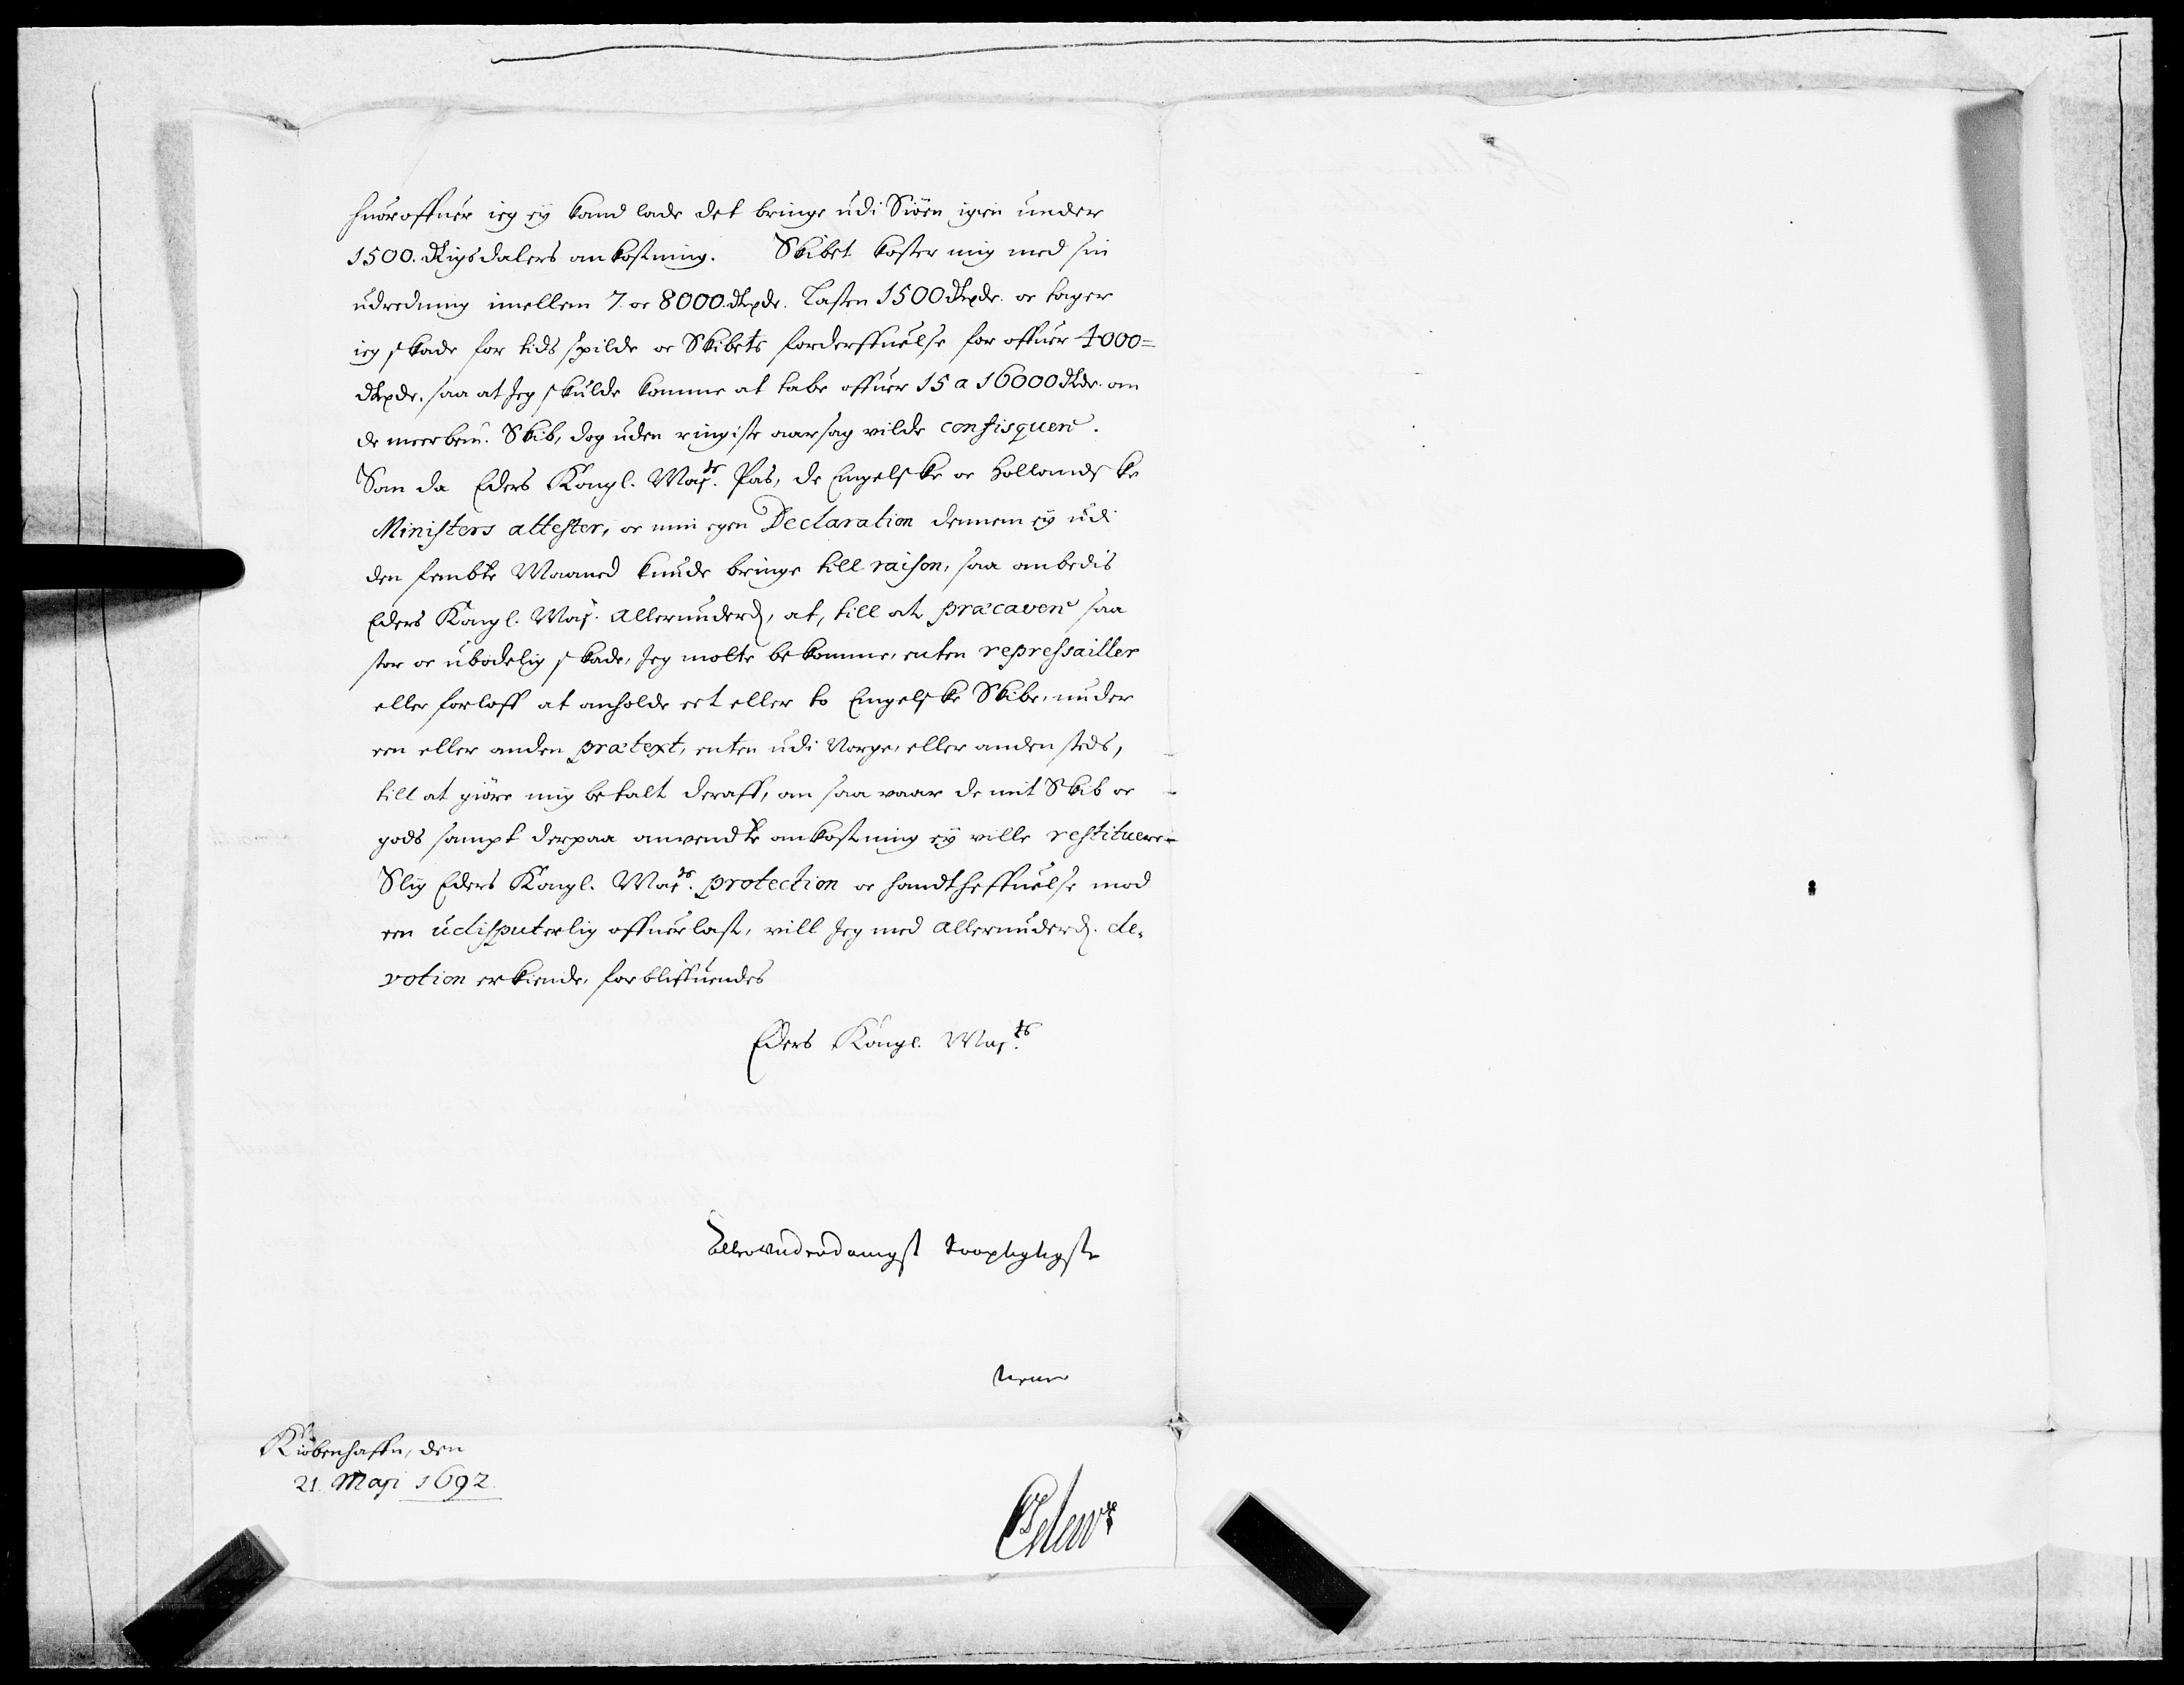 huoroffuer ieg ey kand lade det bringe udi Siöen igien under
1500. Rigsdalers ankostning. Skibet koster mig med sin
udredning imellem 7. oc 8000. Rixdr. Lasten 1500 Rixdr. oc tager
ieg skade for tids spilde oc Skibets forderffuelse for offuer 4000=
Rixdr. saa at Jeg skulde komme at tabe offuer 15 a 16000 Rdr. om
de meerbem. Skib, dog uden ringiste aarsag vilde confisquere.
Som da Eders Kongl. Majts. Pas, de Engelske oc Hollandske
Ministers attester, oc min egen Declaration dennem ey udi
den fembte Maaned kunde bringe till raison, saa anbedis
Eders Kongl. Maj. allerunderd, at, till at præcavere saa
stor oc ubodelig skade, Jeg motte bekomme, enten repressailler
eller forloff at anholde eet eller to Engelske Skibe, under
een eller anden prætext, enten udi Norge, eller andensteds,
till at giöre mig betalt deraff, om saa vaar de mit Skib oc
gods sampt derpaa anvendte ankostning ey ville restituere-
Slig Eders Kongl. Majts. protection oc handtheffuelse mod
een udisputerlig offuerlast, vill Jeg med allerunderd. de-
votion erkiende, forbliffuendes
Eders Kongl. Majts.
Allerunderdanigst troepligtigste
tiener
Kiöbenhaffn, den
21. Maji 1692.